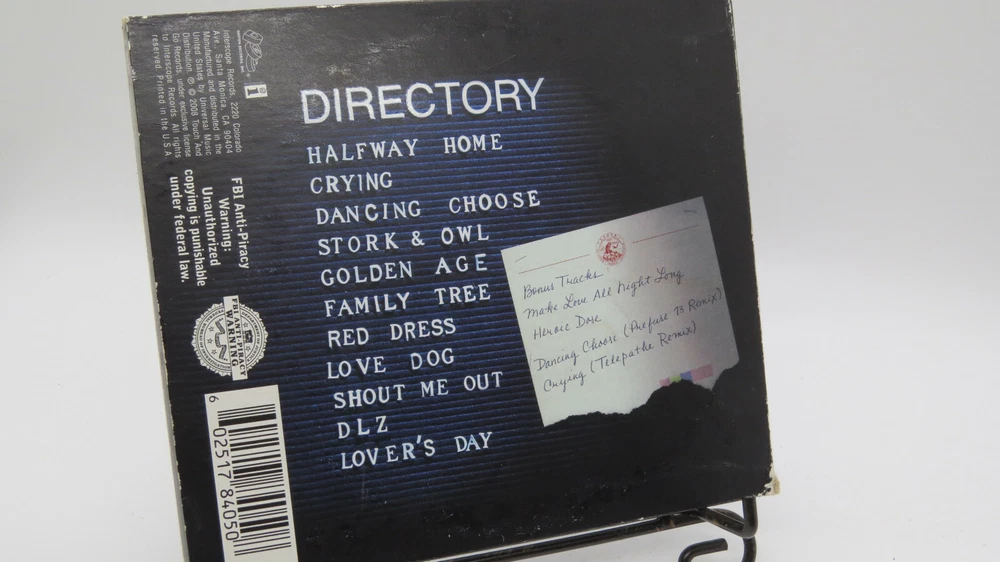 DIRECTORY
HALFWAY HOME
CRYING
DANCING CHOOSE
STORK & OWL
GOLDEN AGE
FAMILY TREE
RED DRESS
LOVE DOG
SHOUT ME OUT
DLZ
LOVER'S DAY
Bonus Tracks
Make Love All Night Long
Heroic Dose
Dancing Choose (Prefuse 73 Remix)
Crying (Telepathe Remix)
Interscope Records, 2220 Colorado
Ave., Santa Monica, CA 90404
Manufactured and distributed in the
United States by Universal Music
Distribution. ℗ © 2008 Touch And
Go Records, under exclusive license
to Interscope Records. All rights
reserved. Printed in the U S A
FBI Anti-Piracy
Warning:
Unauthorized
copying is punishable
under federal law.
FBI ANTI-PIRACY
WARNING
6 02517 84050